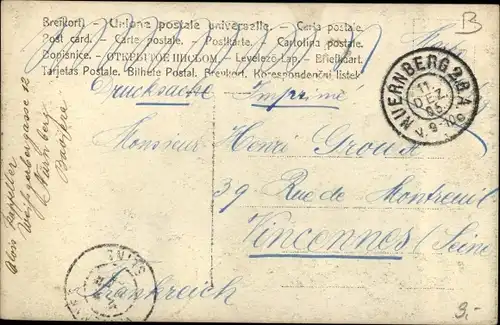 Brefkort. - Unione postale universelle. - Carta postale.
Post card. - Carte postale. - Postkarte. - Cartolina postale.
Dopisnice. - ОТКРЫТОЕ ПИСЬМО. - Levelező-Lap. - Briefkaart.
Tarjetas Postale. Bilhete Postal. Brevkort. Korespondenční listek
B
Drucksache Imprimé
NUERNBERG 2.B.A
11.
DEZ.
05.
V. 9-10
Monsieur Henri Groux
39 Rue de Montreuil
Vincennes (Seine
Frankreich
Weißgerbergasse 12
Nürnberg
9.-